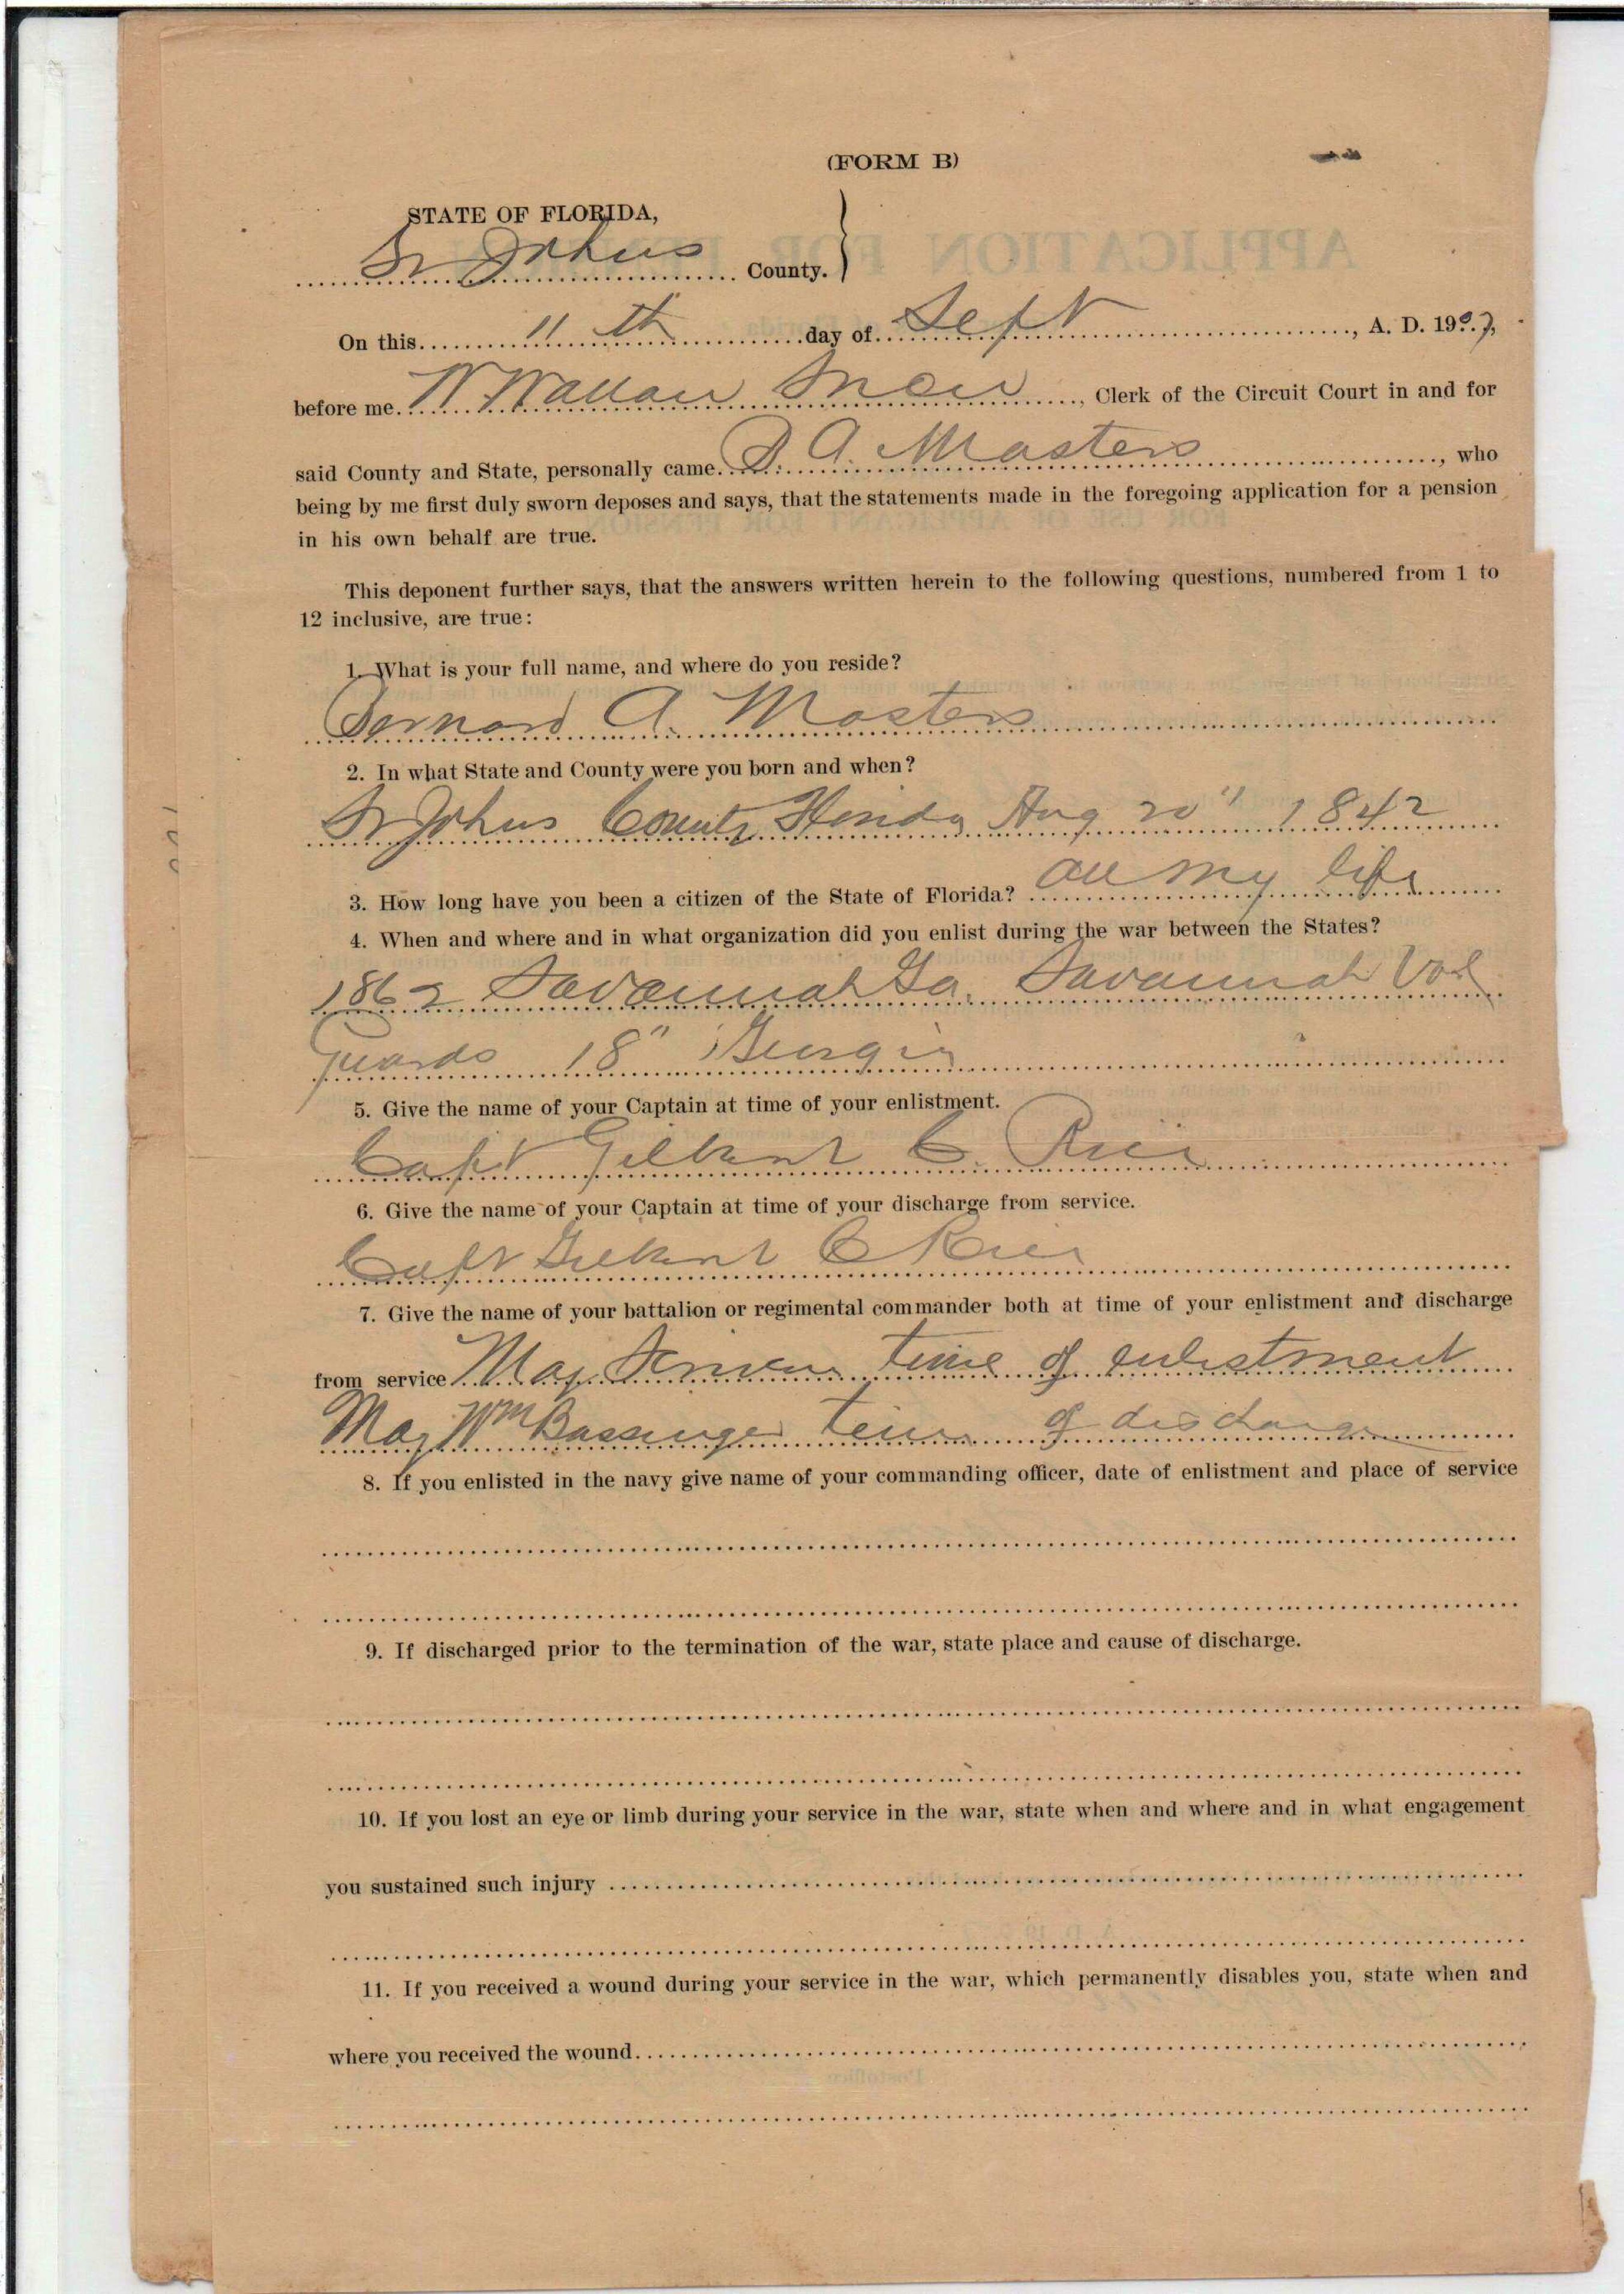 (FORM B)
STATE OF FLORIDA,
St Johns County.
On this 11th day of Sept, A. D. 1907,
before me W. Wallace Snow, Clerk of the Circuit Court in and for
said County and State, personally came B. A. Masters, who
being by me first duly sworn deposes and says, that the statements made in the foregoing application for a pension
in his own behalf are true.
This deponent further says, that the answers written herein to the following questions, numbered from 1 to
12 inclusive, are true:
1. What is your full name, and where do you reside?
Bernard A. Masters
2. In what State and County were you born and when?
St Johns County Florida Aug 20" 1842
3. How long have you been a citizen of the State of Florida? All my life
4. When and where and in what organization did you enlist during the war between the States?
1862 Savannah Ga. Savannah Vol
Guards 18" Georgia
5. Give the name of your Captain at time of your enlistment.
Capt Gilbert C. Rice
6. Give the name of your Captain at time of your discharge from service.
Capt Gilbert C Rice
7. Give the name of your battalion or regimental commander both at time of your enlistment and discharge
from service Maj time of enlistment
Maj Wm Bassinger time of discharge
8. If you enlisted in the navy give name of your commanding officer, date of enlistment and place of service
9. If discharged prior to the termination of the war, state place and cause of discharge.
10. If you lost an eye or limb during your service in the war, state when and where and in what engagement
you sustained such injury
11. If you received a wound during your service in the war, which permanently disables you, state when and
where you received the wound.